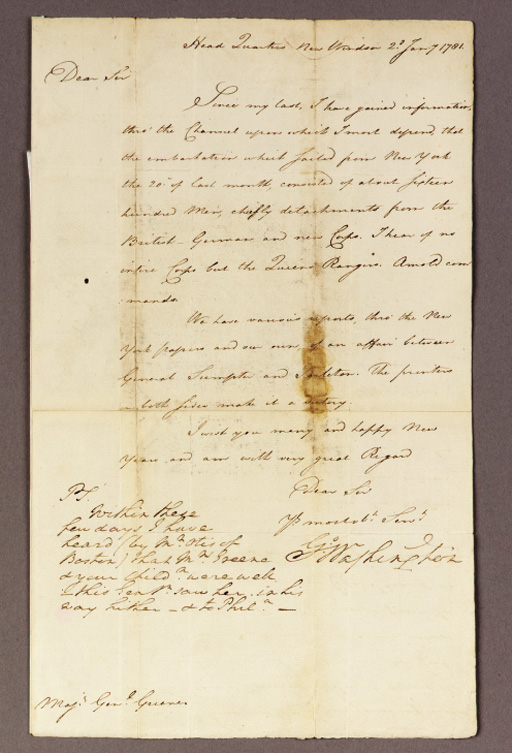 Head Quarters New Windsor 2d. Jany 1781.
Dear Sir
Since my last, I have gained information,
thro' the Channel upon which I most depend, that
the embarkation which sailed from New York
the 20th of last month, consisted of about sixteen
hundred Men, chiefly detachments from the
British - German and new Corps. I hear of no
intire Corps but the Queens Rangers. Arnold com
:mands.
We have various reports, thro' the New
York papers and our own, of an affair between
General Sumpter and Tarleton. The printers
on both sides make it a victory.
I wish you many and happy New
Years and am with very great Regard
Dear Sir
Yr. most obt. Servt.
Go: Washington
PS.
Within these
few days I have
heard (by Mr. Otis of
Boston) that Mrs. Greene
& your Childn. were well
- this Gentn. saw her in his
way hither - & to Phila. -
Majr. Genl. Greene